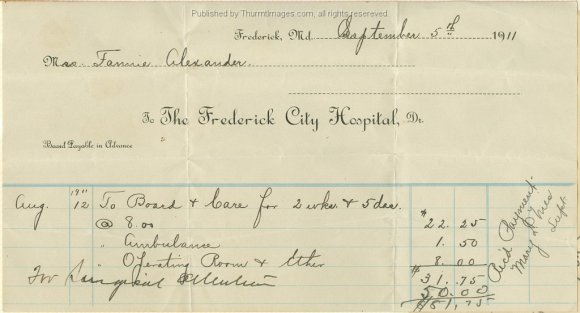 Published by ThurmtImages.com, all rights reserved
Frederick, Md. September 5th 1911
Mrs. Fannie Alexander.
To The Frederick City Hospital, Dr.
Board Payable in Advance
1911
Aug. 12 To Board & Care for 2 wks. & 5 das.
@ 8.00 $22.25
" Ambulance 1.50
" Operating Room & Ether 8.00
$31.75
For Surgical Attention 50.00
$81.75
Rec'd Payment
Mary
Supt